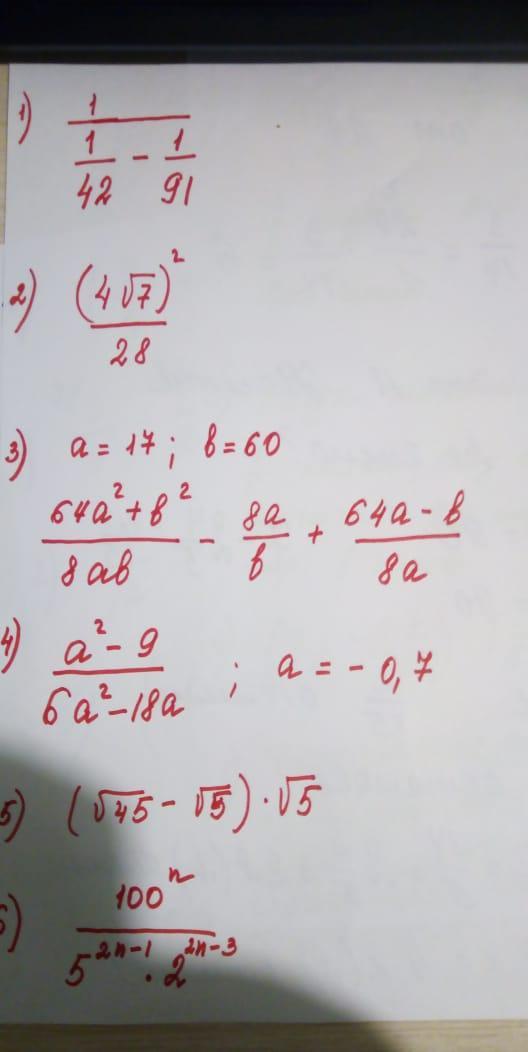 1) 1 / (1/42 - 1/91)
2) (4√7)² / 28
3) a = 17; b = 60
(64a² + b²) / 8ab - 8a/b + (64a - b) / 8a
4) (a² - 9) / (6a² - 18a) ; a = -0,7
5) (√45 - √5) · √5
6) 100ⁿ / (5²ⁿ⁻¹ · 2²ⁿ⁻³)